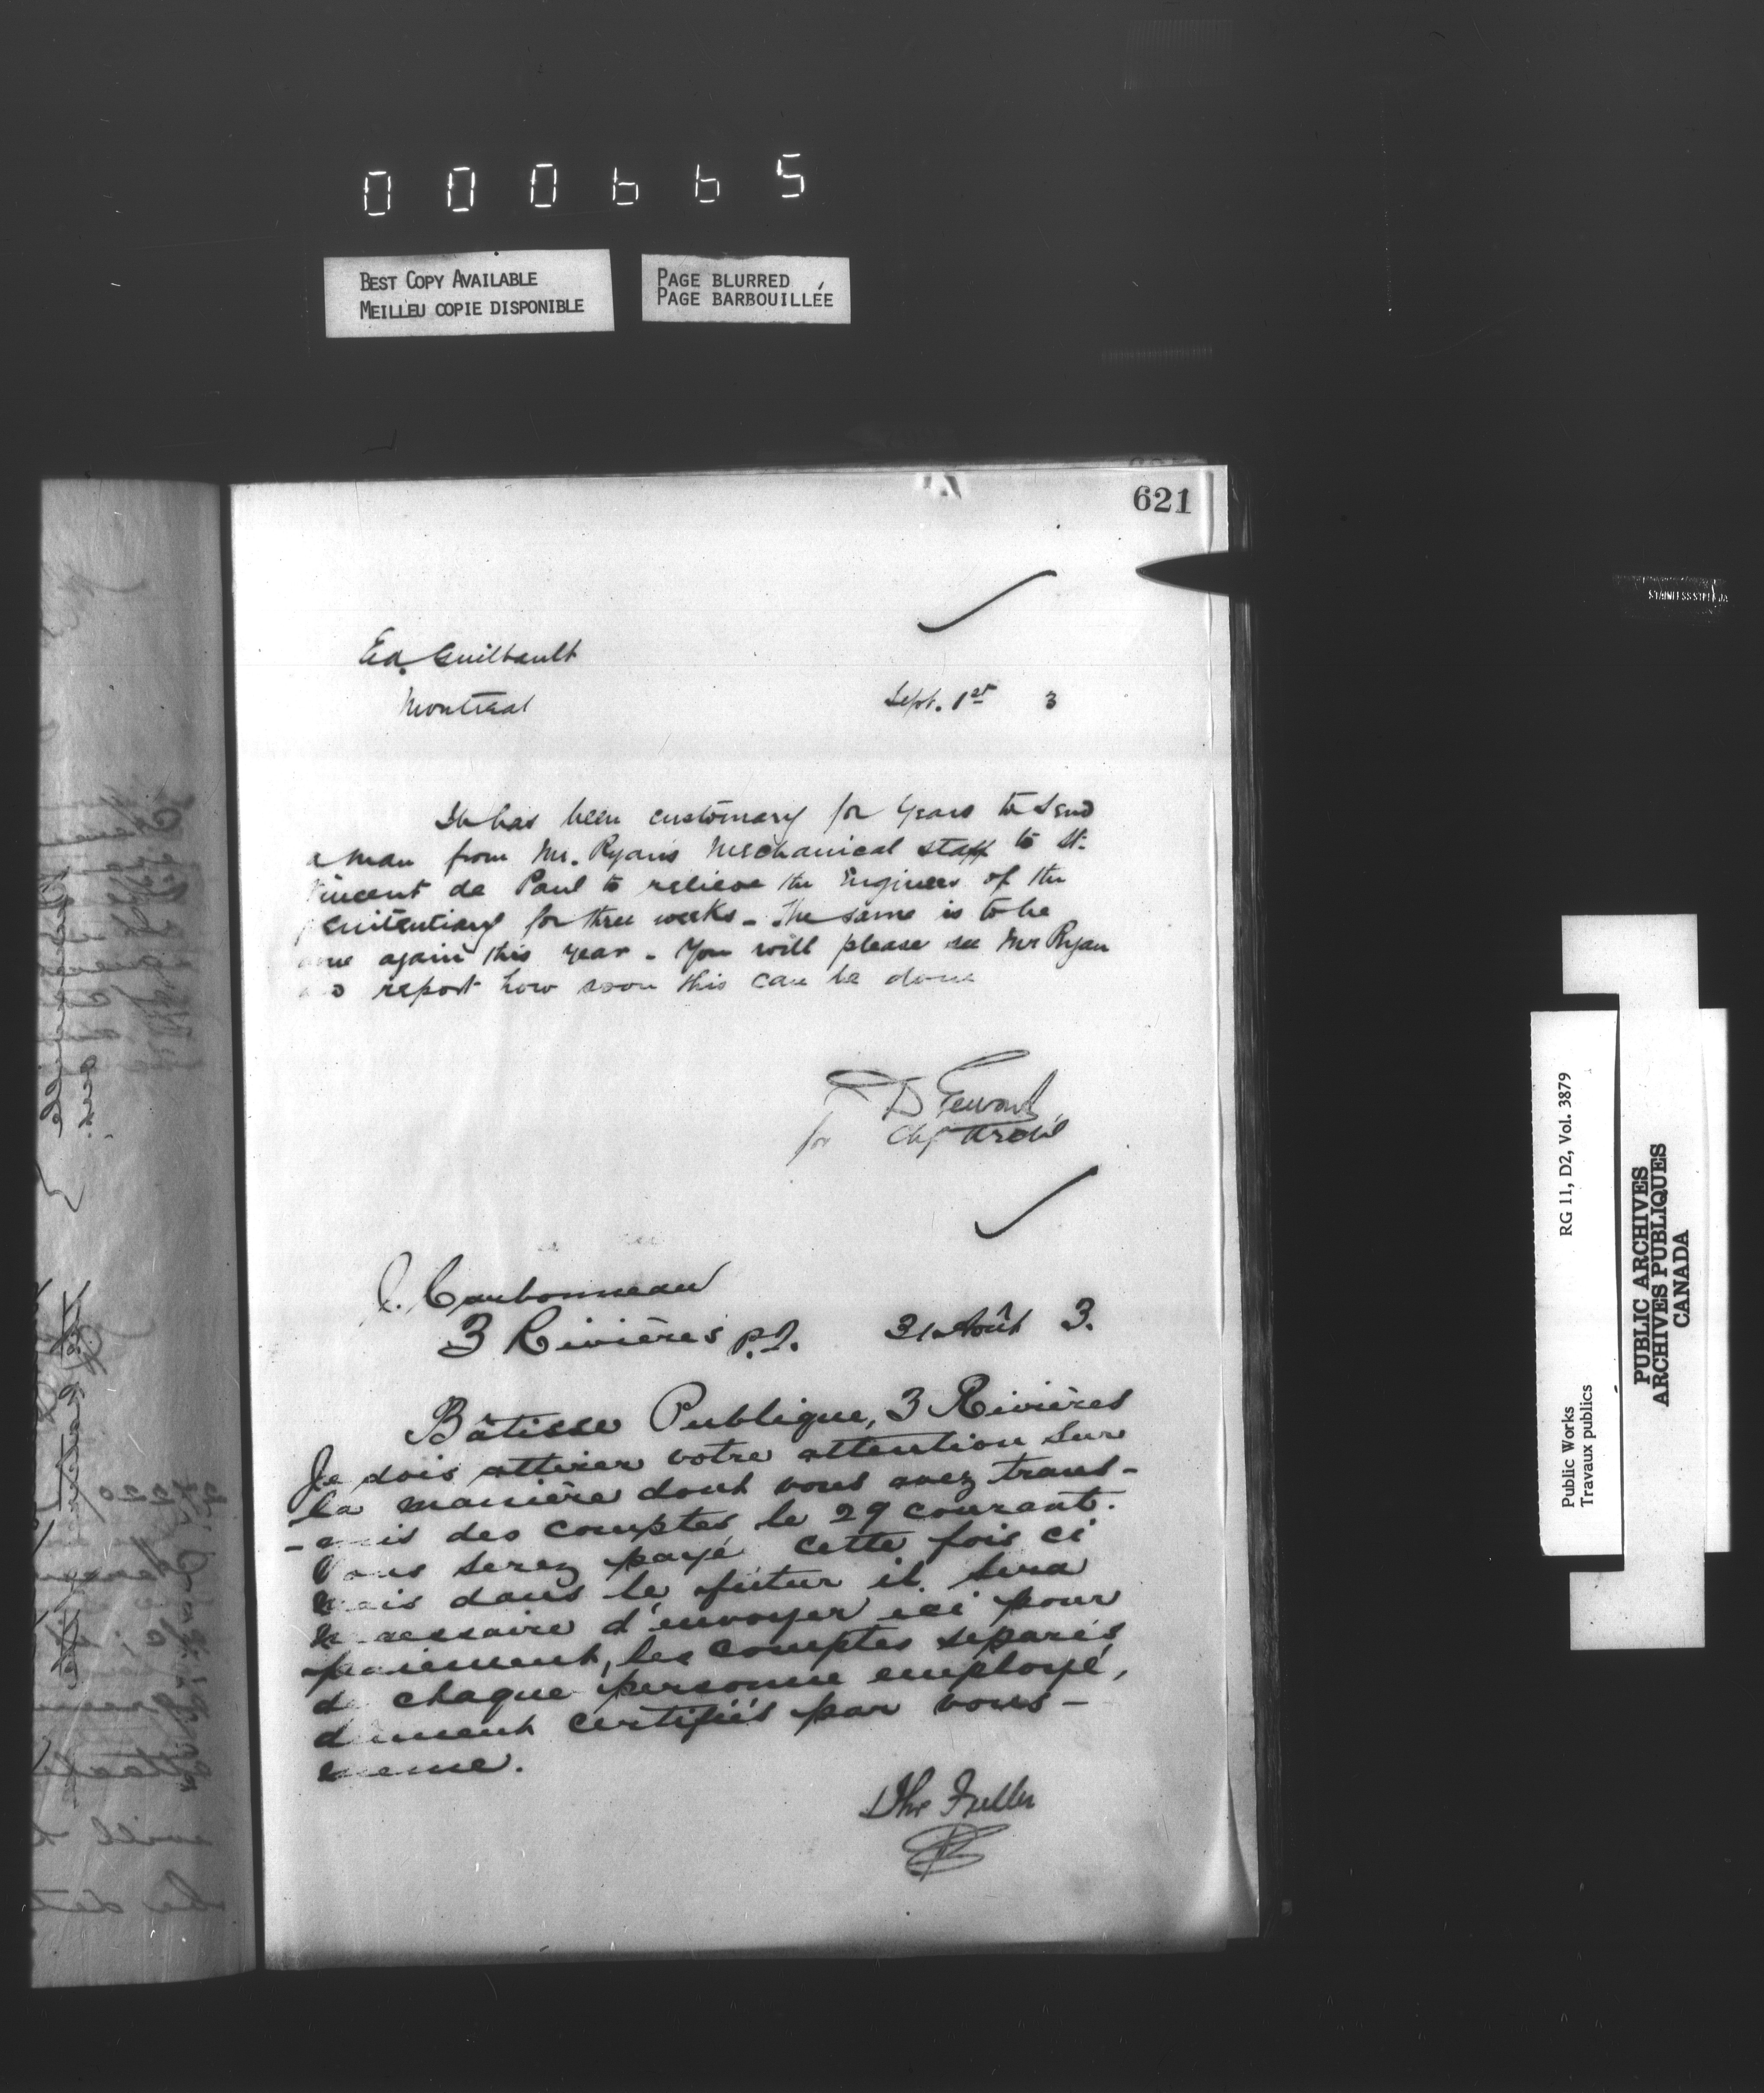 000665
BEST COPY AVAILABLE
MEILLEU COPIE DISPONIBLE
PAGE BLURRED
PAGE BARBOUILLÉE
621
Ed. Guilbault
Montreal
Sept. 1st 3
It has been customary for years to send
a man from Mr. Ryan's Mechanical staff to St.
Vincent de Paul to relieve the Engineer of the
penitentiary for three weeks - The same is to be
done again this year - You will please see Mr Ryan
and report how soon this can be done
D Ewart
for Chf Archt
J. Carbonneau
3 Rivières P.Q. 31 Août 3.
Bâtisse Publique, 3 Rivières
Je dois attirer votre attention sur
la manière dont vous avez trans-
-mis des comptes le 29 courant.
Vous serez payé cette fois ci
mais dans le futur il sera
nécessaire d'envoyer ici pour
paiement, les comptes séparés
de chaque personne employé,
dument certifiés par vous-
meme.
Thos Fuller
STAINLESS STEEL
RG 11, D2, Vol. 3879
Public Works
Travaux publics
PUBLIC ARCHIVES
ARCHIVES PUBLIQUES
CANADA